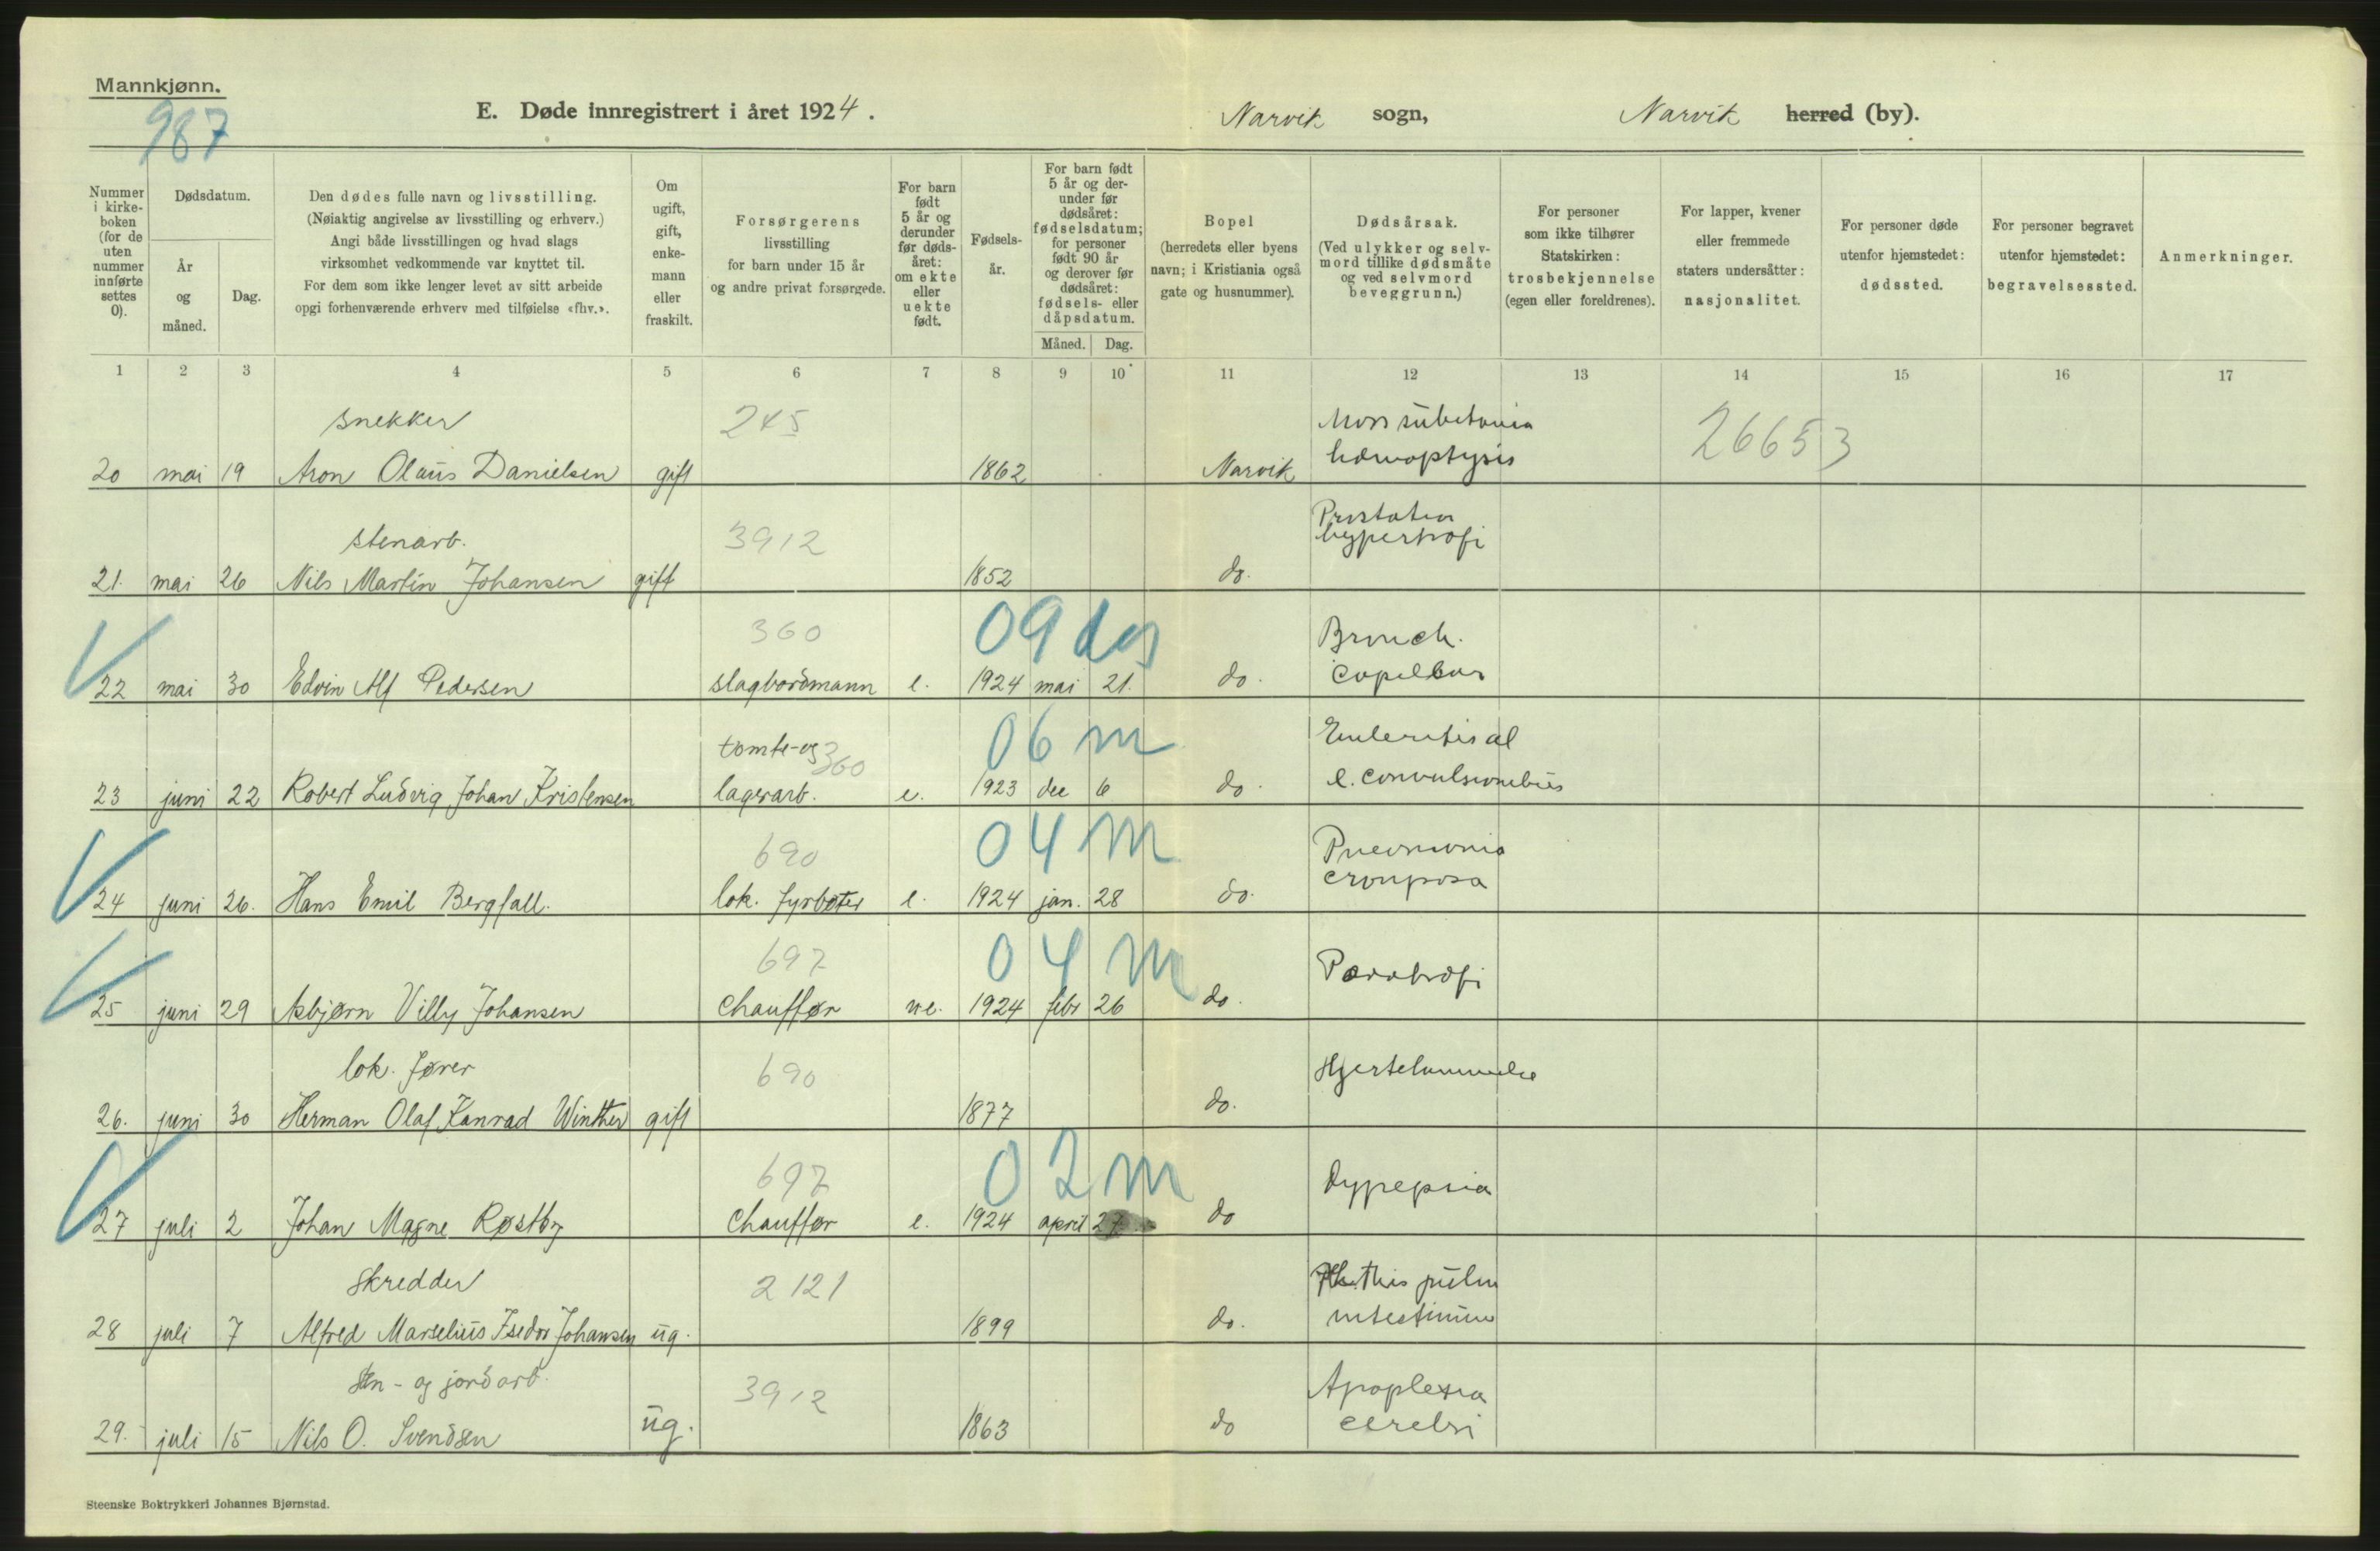 Mannkjønn.
987
E. Døde innregistrert i året 1924.
Narvik sogn,
Narvik herred (by).
Nummer i kirke- boken (for de uten nummer innførte settes 0).
Dødsdatum.
År og måned.
Dag.
Den dødes fulle navn og livsstilling.
(Nøiaktig angivelse av livsstilling og erhverv.)
Angi både livsstillingen og hvad slags
virksomhet vedkommende var knyttet til.
For dem som ikke lenger levet av sitt arbeide
opgi forhenværende erhverv med tilføielse «fhv.».
Om ugift, gift, enke- mann eller fraskilt.
Forsørgerens
livsstilling
for barn under 15 år
og andre privat forsørgede.
For barn født 5 år og derunder før døds- året: om ekte eller uekte født.
Fødsels- år.
For barn født 5 år og der- under før dødsåret: fødselsdatum; for personer født 90 år og derover før dødsåret: fødsels- eller dåpsdatum.
Måned.
Dag.
Bopel
(herredets eller byens
navn; i Kristiania også
gate og husnummer).
Dødsårsak.
(Ved ulykker og selv-
mord tillike dødsmåte
og ved selvmord
beveggrunn.)
For personer
som ikke tilhører
Statskirken:
trosbekjennelse
(egen eller foreldrenes).
For lapper, kvener
eller fremmede
staters undersåtter:
nasjonalitet.
For personer døde
utenfor hjemstedet:
dødssted.
For personer begravet
utenfor hjemstedet:
begravelsessted.
Anmerkninger.
1 2 3 4 5 6 7 8 9 10 11 12 13 14 15 16 17
snekker 245 Mors subitania 26653
20 mai 19 Aron Olaus Danielsen gift 1862 Narvik hæmoptysis
stenarb. 3912 Prostata
21. mai 26 Nils Martin Johansen gift 1852 do. hypertrofi
360 09 das Bronch.
22 mai 30 Edvin Alf Pedersen slagbordmann e. 1924 mai 21. do. Capillar
tomte- og 360 06 m
23 juni 22 Robert Ludvig Johan Kristensen lagerarb. e. 1923 dec 6 do. e. convulsionibus
690 04 m Pneumonia
24 juni 26. Hans Emil Bergfall. lok. fyrbøter e. 1924 jan. 28 do. crouposa
697 04 m
25 juni 29 Asbjørn Villy Johansen Chauffør ue. 1924 febr 26 do. Pæratrofi
lok. fører 690 Hjertelammelse
26. juni 30 Herman Olaf Konrad Winther gift 1877 do.
697 02 m Dyspepsia
27 juli 2 Johan Magne Røstby Chauffør e. 1924 april 27. do
Skredder 2121 Phthis pulm
28 juli 7 Alfred Marselius Isedor Johansen ug. 1899 do. intestinum
Sten- og jordarb. 3912 Apoplexia
29. juli 15 Nils O. Svendsen ug. 1863 do cerebri
Steenske Boktrykkeri Johannes Bjørnstad.